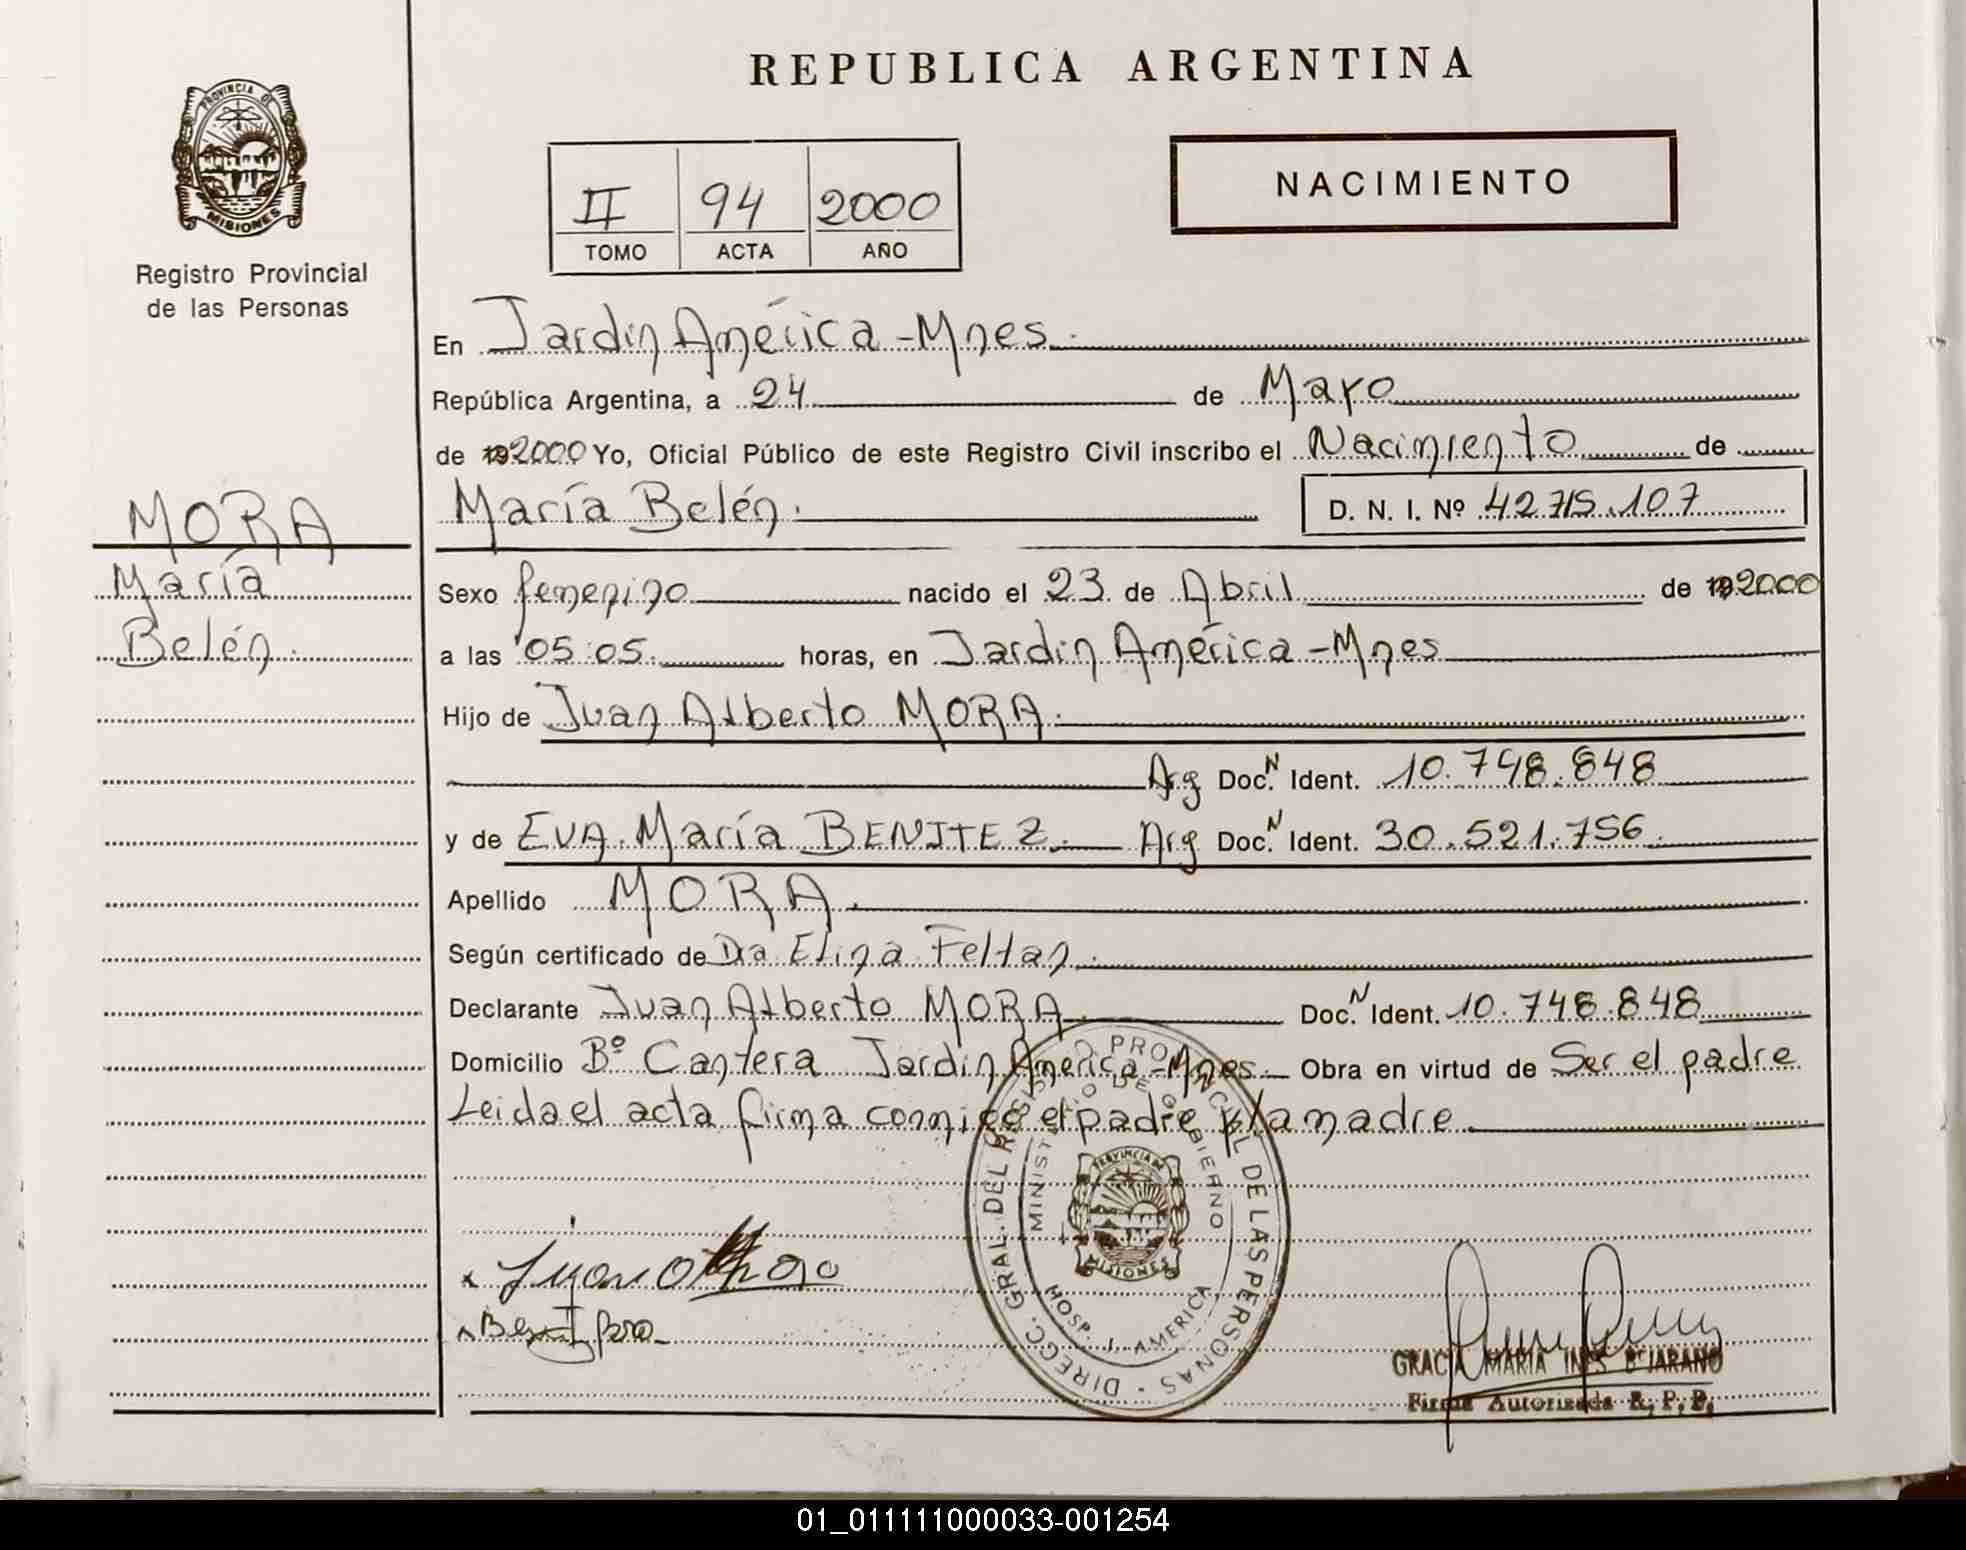 REPUBLICA ARGENTINA
PROVINCIA DE
MISIONES
Registro Provincial
de las Personas
II 94 2000
TOMO ACTA AÑO
NACIMIENTO
En Jardín América - Mnes.
República Argentina, a 24 de Mayo
de 192000 Yo, Oficial Público de este Registro Civil inscribo el Nacimiento de
María Belén. D. N. I. Nº 42.715.107
MORA
María
Belén.
Sexo femenino nacido el 23 de Abril de 192000
a las 05:05. horas, en Jardín América - Mnes
Hijo de Juan Alberto MORA.
Arg Doc. N Ident. 10.748.848
y de EVA María BENITEZ. Arg Doc. N Ident. 30.521.756.
Apellido MORA.
Según certificado de Dra Elina Feltan.
Declarante Juan Alberto MORA Doc. N Ident. 10.748.848
Domicilio Bº Cantera Jardín América - Mnes. Obra en virtud de Ser el padre
Leida el acta firma conmigo el padre y la madre
DIREGC. GRAL. DEL REGISTRO PROVINCIAL DE LAS PERSONAS
MINISTERIO DE GOBIERNO
PROVINCIA DE
MISIONES
HOSP. J. AMERICA
GRACIA MARIA INES BEJARANO
Firma Autorizada R. P. P.
01_011111000033-001254